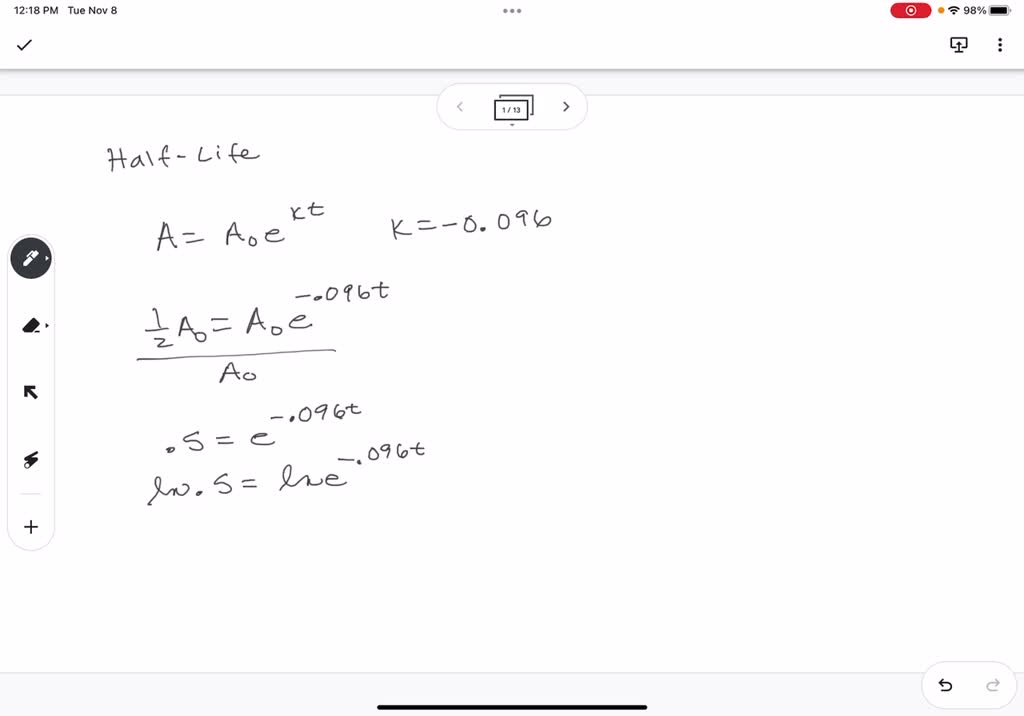 12:18 PM Tue Nov 8
98%
1 / 13
Half-Life
A = A₀e^kt K = -0.096
½A₀ = A₀e^-.096t
A₀
.5 = e^-.096t
ln .5 = lne^-.096t